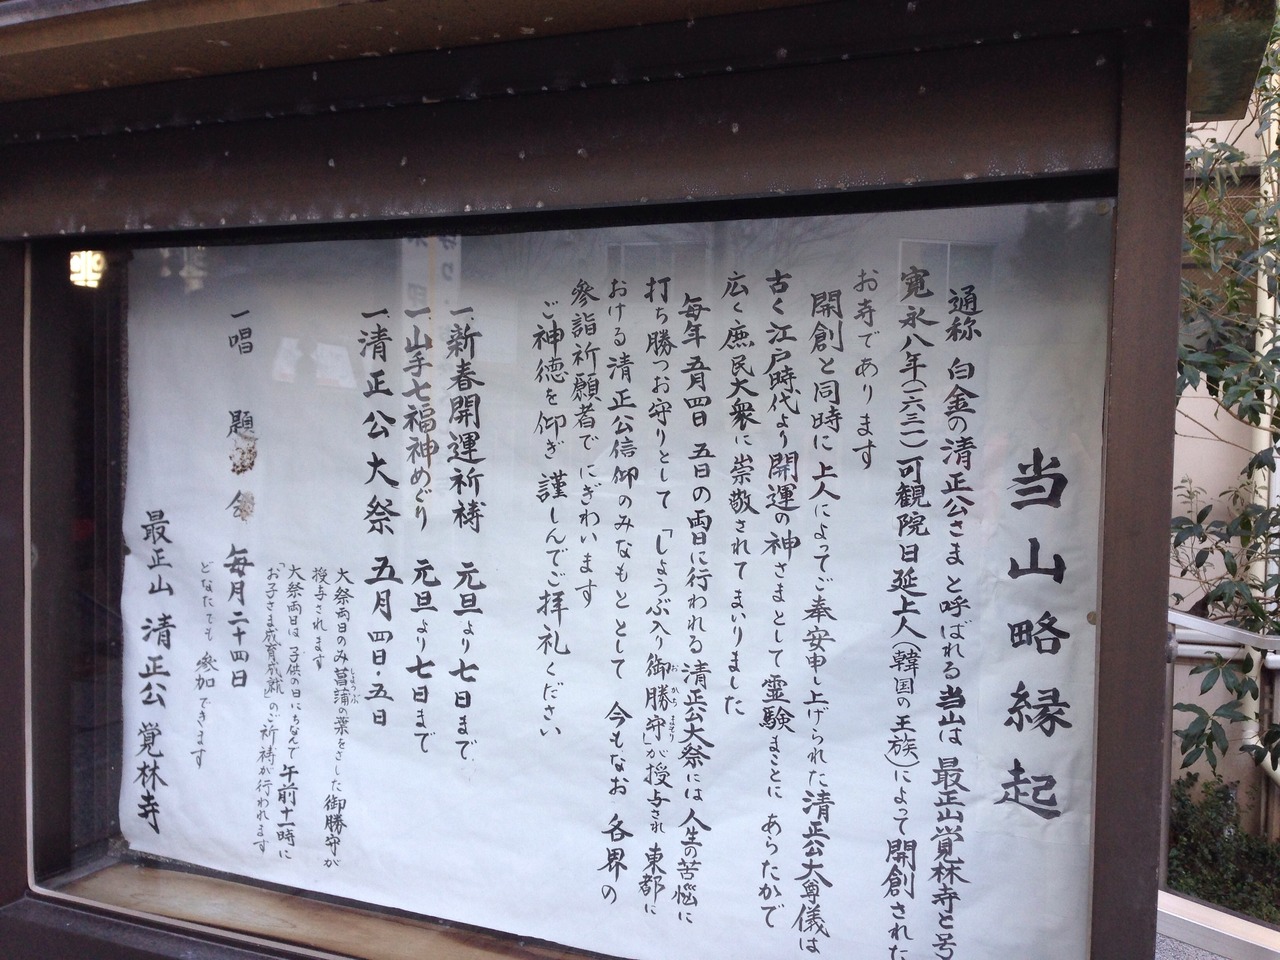 当山略縁起
通称 白金の清正公さまと呼ばれる当山は 最正山覚林寺と号
寛永八年(一六三一)可観院日延上人(韓国の王族)によって開創された
お寺であります
開創と同時に上人によってご奉安申し上げられた清正公大尊儀は
古く江戸時代より開運の神さまとして霊験まことに あらたかで
広く庶民大衆に崇敬されてまいりました
毎年 五月四日 五日の両日に行われる清正公大祭には人生の苦悩に
打ち勝つお守りとして「しょうぶ入り御勝守」が授与され 東都に
おける清正公信仰のみなもととして 今もなお 各界の
参詣祈願者で にぎわいます
ご神徳を仰ぎ 謹しんでご拝礼ください
一、新春開運祈祷 元旦より七日まで
一、山手七福神めぐり 元旦より七日まで
一、清正公大祭 五月四日・五日
大祭両日のみ菖蒲の葉をさした御勝守が
授与されます
大祭両日は 子供の日にちなんで 午前十一時に
「お子さま成育成就」のご祈祷が行われます
一、唱題会 毎月二十四日
どなたでも 参加できます
最正山 清正公 覚林寺